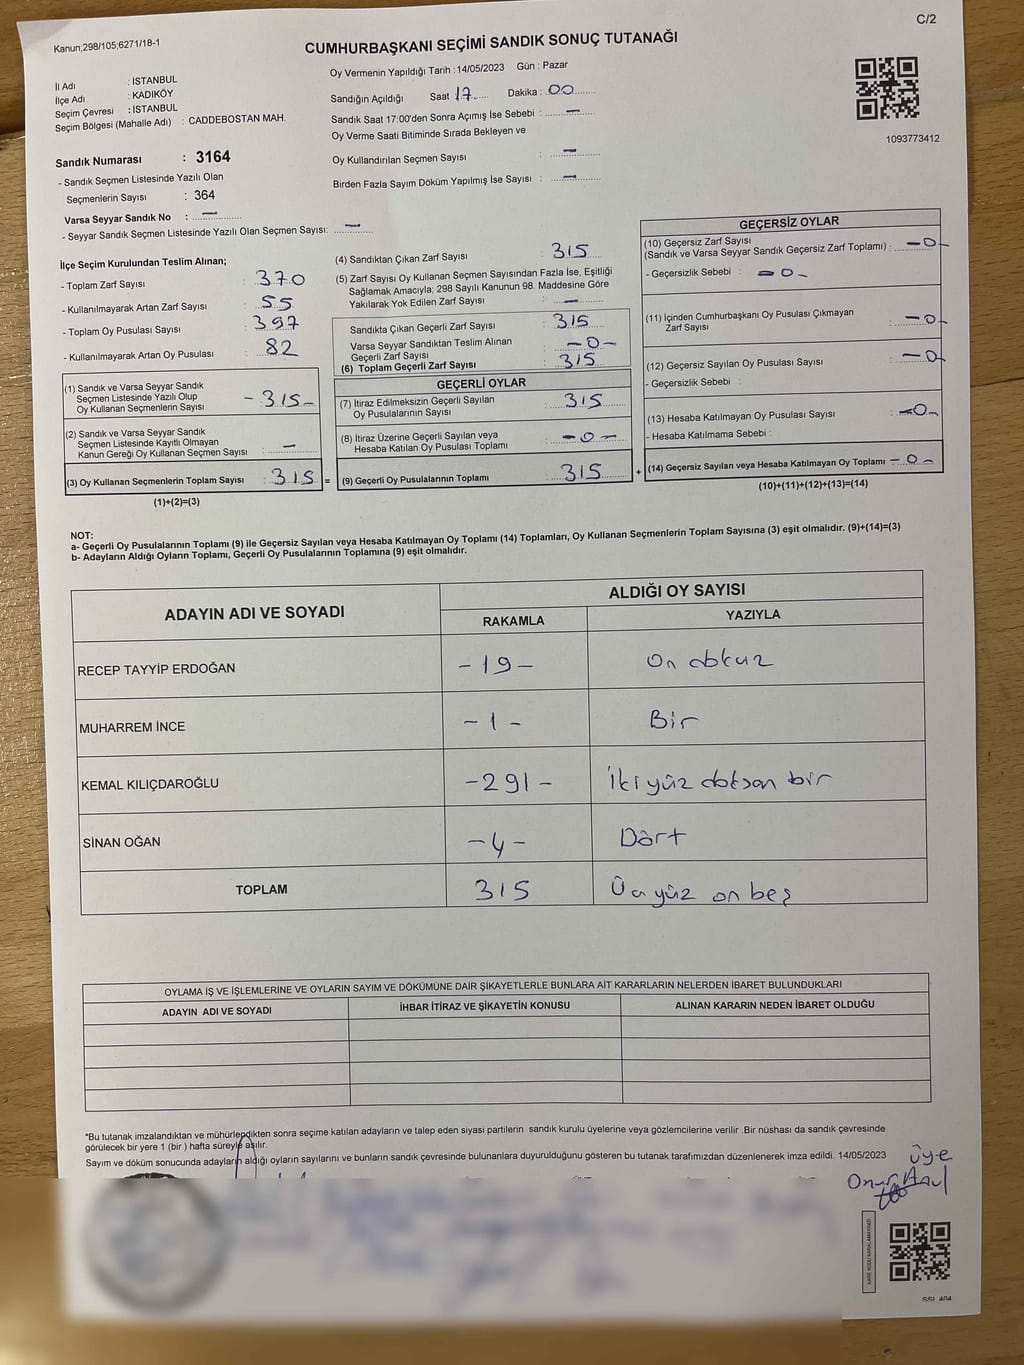 C/2
Kanun;298/105;6271/18-1
CUMHURBAŞKANI SEÇİMİ SANDIK SONUÇ TUTANAĞI
1093773412
İl Adı : İSTANBUL
İlçe Adı : KADIKÖY
Seçim Çevresi : İSTANBUL
Seçim Bölgesi (Mahalle Adı) : CADDEBOSTAN MAH.
Sandık Numarası : 3164
- Sandık Seçmen Listesinde Yazılı Olan
Seçmenlerin Sayısı : 364
Varsa Seyyar Sandık No : —
- Seyyar Sandık Seçmen Listesinde Yazılı Olan Seçmen Sayısı: —
Oy Vermenin Yapıldığı Tarih :14/05/2023 Gün : Pazar
Sandığın Açıldığı Saat 17 Dakika : 00
Sandık Saat 17:00'den Sonra Açımış İse Sebebi : —
Oy Verme Saati Bitiminde Sırada Bekleyen ve
Oy Kullandırılan Seçmen Sayısı : —
Birden Fazla Sayım Döküm Yapılmış İse Sayısı : —
İlçe Seçim Kurulundan Teslim Alınan;
- Toplam Zarf Sayısı : 370
- Kullanılmayarak Artan Zarf Sayısı : 55
- Toplam Oy Pusulası Sayısı : 397
- Kullanılmayarak Artan Oy Pusulası : 82
(1) Sandık ve Varsa Seyyar Sandık
Seçmen Listesinde Yazılı Olup
Oy Kullanan Seçmenlerin Sayısı - 315 -
(2) Sandık ve Varsa Seyyar Sandık
Seçmen Listesinde Kayıtlı Olmayan
Kanun Gereği Oy Kullanan Seçmen Sayısı : —
(3) Oy Kullanan Seçmenlerin Toplam Sayısı : 315 =
(1)+(2)=(3)
(4) Sandıktan Çıkan Zarf Sayısı : 315
(5) Zarf Sayısı Oy Kullanan Seçmen Sayısından Fazla İse, Eşitliği
Sağlamak Amacıyla; 298 Sayılı Kanunun 98. Maddesine Göre
Yakılarak Yok Edilen Zarf Sayısı : —
Sandıkta Çıkan Geçerli Zarf Sayısı : 315
Varsa Seyyar Sandıktan Teslim Alınan
Geçerli Zarf Sayısı : -0-
(6) Toplam Geçerli Zarf Sayısı : 315
GEÇERLİ OYLAR
(7) İtiraz Edilmeksizin Geçerli Sayılan
Oy Pusulalarının Sayısı : 315
(8) İtiraz Üzerine Geçerli Sayılan veya
Hesaba Katılan Oy Pusulası Toplamı : -0-
(9) Geçerli Oy Pusulalarının Toplamı : 315 +
GEÇERSİZ OYLAR
(10) Geçersiz Zarf Sayısı
(Sandık ve Varsa Seyyar Sandık Geçersiz Zarf Toplamı) : -0-
- Geçersizlik Sebebi : -0-
(11) İçinden Cumhurbaşkanı Oy Pusulası Çıkmayan
Zarf Sayısı : -0-
(12) Geçersiz Sayılan Oy Pusulası Sayısı : -0-
- Geçersizlik Sebebi :
(13) Hesaba Katılmayan Oy Pusulası Sayısı : -0-
- Hesaba Katılmama Sebebi :
(14) Geçersiz Sayılan veya Hesaba Katılmayan Oy Toplamı -0-
(10)+(11)+(12)+(13)=(14)
NOT:
a- Geçerli Oy Pusulalarının Toplamı (9) ile Geçersiz Sayılan veya Hesaba Katılmayan Oy Toplamı (14) Toplamları, Oy Kullanan Seçmenlerin Toplam Sayısına (3) eşit olmalıdır. (9)+(14)=(3)
b- Adayların Aldığı Oyların Toplamı, Geçerli Oy Pusulalarının Toplamına (9) eşit olmalıdır.
ADAYIN ADI VE SOYADI ALDIĞI OY SAYISI
RAKAMLA YAZIYLA
RECEP TAYYİP ERDOĞAN -19- On dokuz
MUHARREM İNCE -1- Bir
KEMAL KILIÇDAROĞLU -291- İki yüz doksan bir
SİNAN OĞAN -4- Dört
TOPLAM 315 Üç yüz on beş
OYLAMA İŞ VE İŞLEMLERİNE VE OYLARIN SAYIM VE DÖKÜMÜNE DAİR ŞİKAYETLERLE BUNLARA AİT KARARLARIN NELERDEN İBARET BULUNDUKLARI
ADAYIN ADI VE SOYADI İHBAR İTİRAZ VE ŞİKAYETİN KONUSU ALINAN KARARIN NEDEN İBARET OLDUĞU
*Bu tutanak imzalandıktan ve mühürlendikten sonra seçime katılan adayların ve talep eden siyasi partilerin sandık kurulu üyelerine veya gözlemcilerine verilir .Bir nüshası da sandık çevresinde
görülecek bir yere 1 (bir ) hafta süreyle asılır.
Sayım ve döküm sonucunda adayların aldığı oyların sayılarını ve bunların sandık çevresinde bulunanlara duyurulduğunu gösteren bu tutanak tarafımızdan düzenlenerek imza edildi. 14/05/2023
Üye
Onur